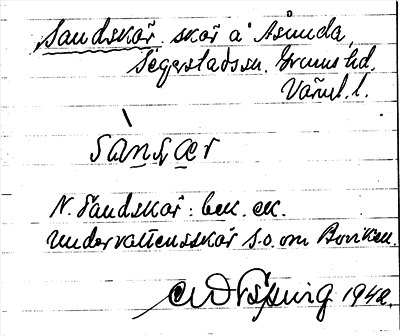 Sandskär. skär å Åsunda,
Segerstads sn. Grums hd.
Värml. l.
sànsʒær
N. Sandskär: bek. ek.
Undervattensskär s.o. om Borviken.
1942.